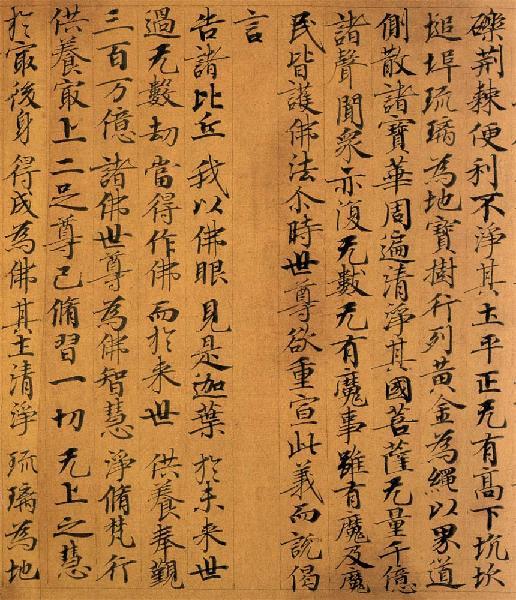 礫荊棘便利不淨其土平正无有高下坑坎
堆埠琉璃為地寶樹行列黃金為繩以界道
側散諸寶華周遍清淨其國菩薩无量千億
諸聲聞衆亦復无數无有魔事雖有魔及魔
民皆護佛法尒時世尊欲重宣此義而說偈
言
告諸比丘 我以佛眼 見是迦葉 於未來世
過无數劫 當得作佛 而於來世 供養奉覲
三百万億 諸佛世尊 為佛智慧 淨脩梵行
供養冣上 二足尊已 脩習一切 无上之慧
於冣後身 得成為佛 其土清淨 琉璃為地